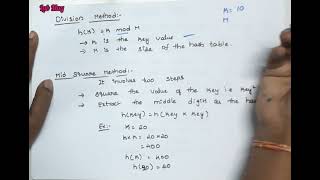 Division Method:-
K = 10
M
h(K) = K mod M
→ K is the Key value
→ M is the size of the hash table.
Mid Square Method:-
It involves two steps
Square the value of the Key i.e Key²
→ Extract the middle digits as the has
h(Key) = h(Key x Key)
Ex:- K = 20
K×K = 20×20
= 400
h(K) = 400
h(20) = 40